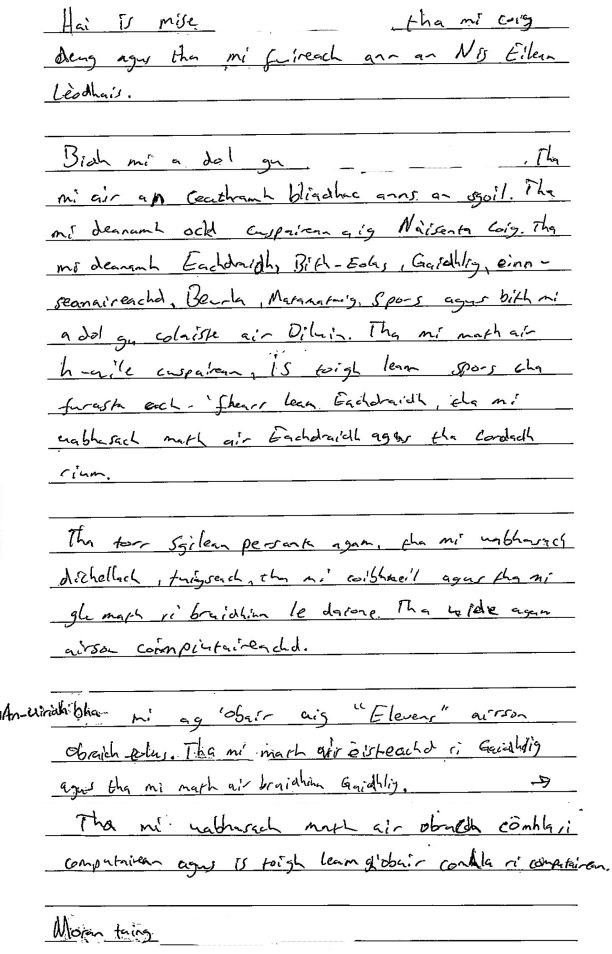 Hai is mise tha mi coig
deug agus tha mi fuireach ann an Nis Eilean
Lèodhais.
Bidh mi a dol gu . Tha
mi air an ceathramh bliadhna anns an sgoil. Tha
mi deanamh ochd cuspairean aig Nàisenta Coig. Tha
mi deanamh Eachdraidh, Bith-Eolas, Gaidhlig, einn-
seanaireachd, Beurla, Matamataig, Spors agus bith mi
a dol gu colaiste air Diluin. Tha mi math air
h-uile cuspairean, is toigh leam spors cha
furasta each- 'fhearr leam Eachdraidh, tha mi
uabhasach math air Eachdraidh agus tha cordadh
rium.
Tha torr Sgilean persanta agam, tha mi uabhasach
dichellach, tuigseach, tha mi coibhneil agus tha mi
gle math ri braidhinn le daoine. Tha agam
airson coimpiutaireachd.
An-uiridh bha mi ag 'obair aig "Elevens" airson
Obraich-eolas. Tha mi math air èisteachd ri Gaidhlig
agus tha mi math air braidhinn Gaidhlig. →
Tha mi uabhasach math air còmhla ri
computairean agus is toigh leam g'obair comhla ri computairean.
Moran taing